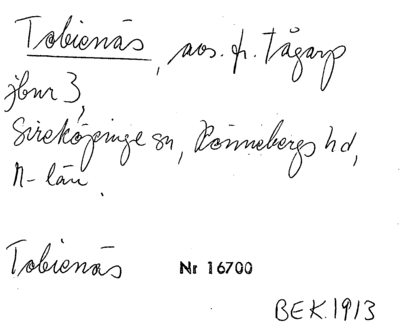 Tobienäs, avs. fr. Tågarp
jbnr 3,
Sireköpinge sn, Rönnebergs hd,
M-län.
Tobienäs Nr 16700
BEK.1913